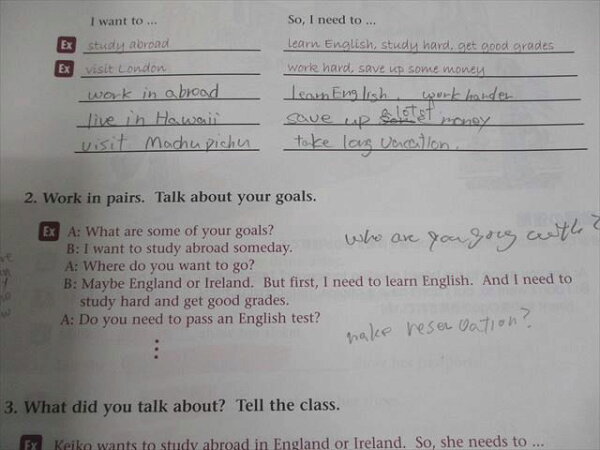 I want to ...
So, I need to ...
Ex study abroad
learn English, study hard, get good grades
Ex visit London
work hard, save up some money
work in abroad
learn English, work harder
live in Hawaii
save up a lot of money
visit Machu pichu
take long vacation.
2. Work in pairs. Talk about your goals.
Ex A: What are some of your goals?
B: I want to study abroad someday.
who are you going with?
A: Where do you want to go?
B: Maybe England or Ireland. But first, I need to learn English. And I need to
study hard and get good grades.
A: Do you need to pass an English test?
make reservation?
3. What did you talk about? Tell the class.
Ex Keiko wants to study abroad in England or Ireland. So, she needs to ...